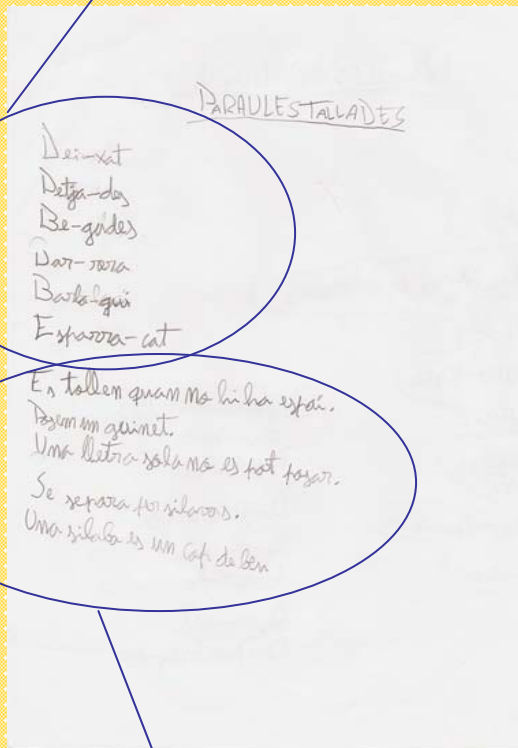 PARAULES TALLADES
Dei-xat
Detja-des
Be-gudes
Dar-rera
Barba-gui
Esparra-cat
Es tallen quan no hi ha espai.
Posem un guinet.
Una lletra sola no es pot posar.
Se separa per silavas.
Una silaba es un cop de ben